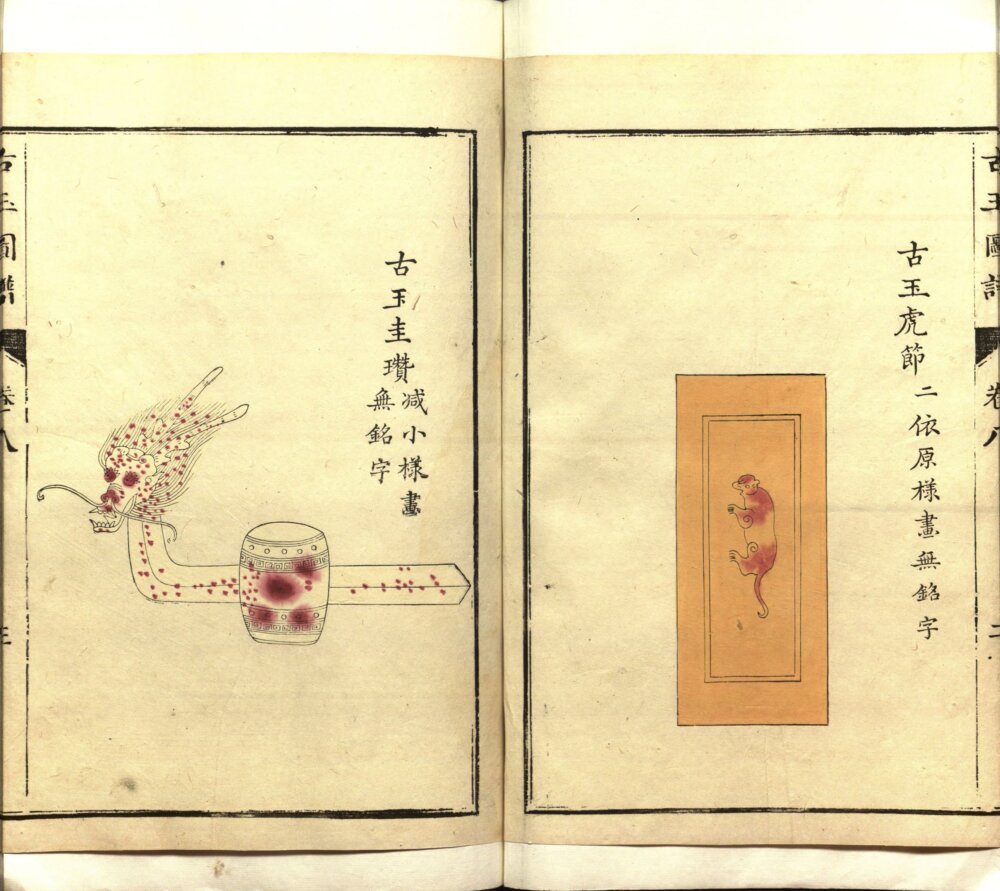 古玉圖譜
卷八
二
古玉虎節 二依原樣畫無銘字
古玉圭瓚 减小樣畫
無銘字
古玉圖譜
卷八
三